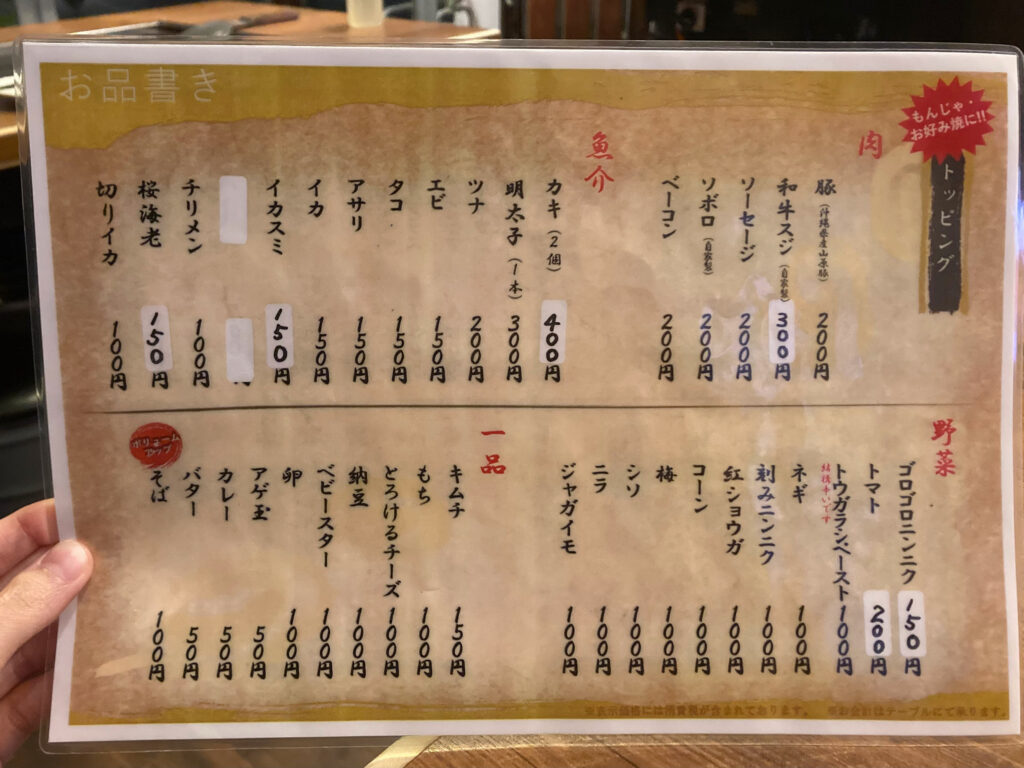 お品書き
もんじゃ・
お好み焼に!!
トッピング
肉
豚（沖縄県産山原豚） 200円
和牛スジ（自家製） 300円
ソーセージ 200円
ソボロ（自家製） 200円
ベーコン 200円
魚介
カキ（2個） 400円
明太子（1本） 300円
ツナ 200円
エビ 150円
タコ 150円
アサリ 150円
イカ 150円
イカスミ 150円
円
チリメン 100円
桜海老 150円
切りイカ 100円
野菜
ゴロゴロニンニク 150円
トマト 200円
トウガラシペースト 100円
結構辛いです
ネギ 100円
刻みニンニク 100円
紅ショウガ 100円
コーン 100円
梅 100円
シソ 100円
ニラ 100円
ジャガイモ 100円
一品
キムチ 150円
もち 100円
とろけるチーズ 100円
納豆 100円
ベビースター 100円
卵 100円
アゲ玉 50円
カレー 50円
バター 50円
ボリューム
アップ
そば 100円
※表示価格には消費税が含まれております。 ※お会計はテーブルにて承ります。